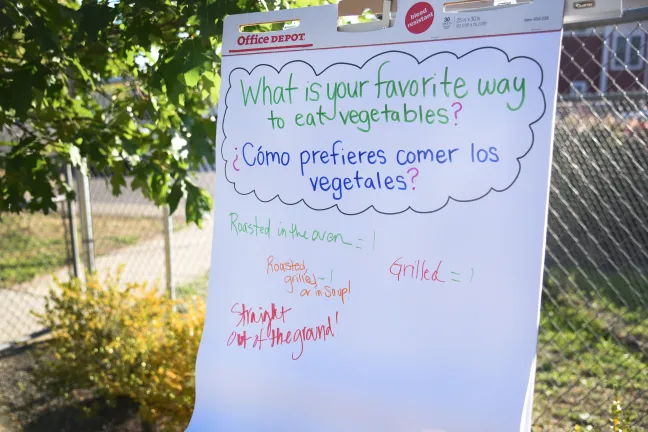 Office DEPOT
bleed resistant
30
What is your favorite way
to eat vegetables?
¿Cómo prefieres comer los
vegetales?
Roasted in the oven = 1
Roasted,
grilled - 1
or in Soup!
Grilled = 1
Straight
out of the ground!